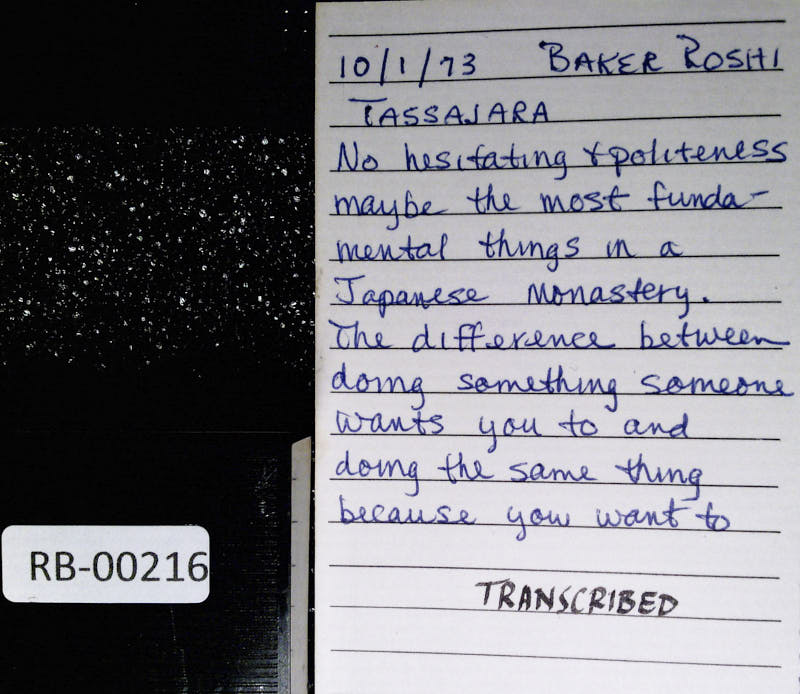 10/1/73 BAKER ROSHI
TASSAJARA
No hesitating & politeness
maybe the most funda-
mental things in a
Japanese monastery.
The difference between
doing something someone
wants you to and
doing the same thing
because you want to
TRANSCRIBED
RB-00216